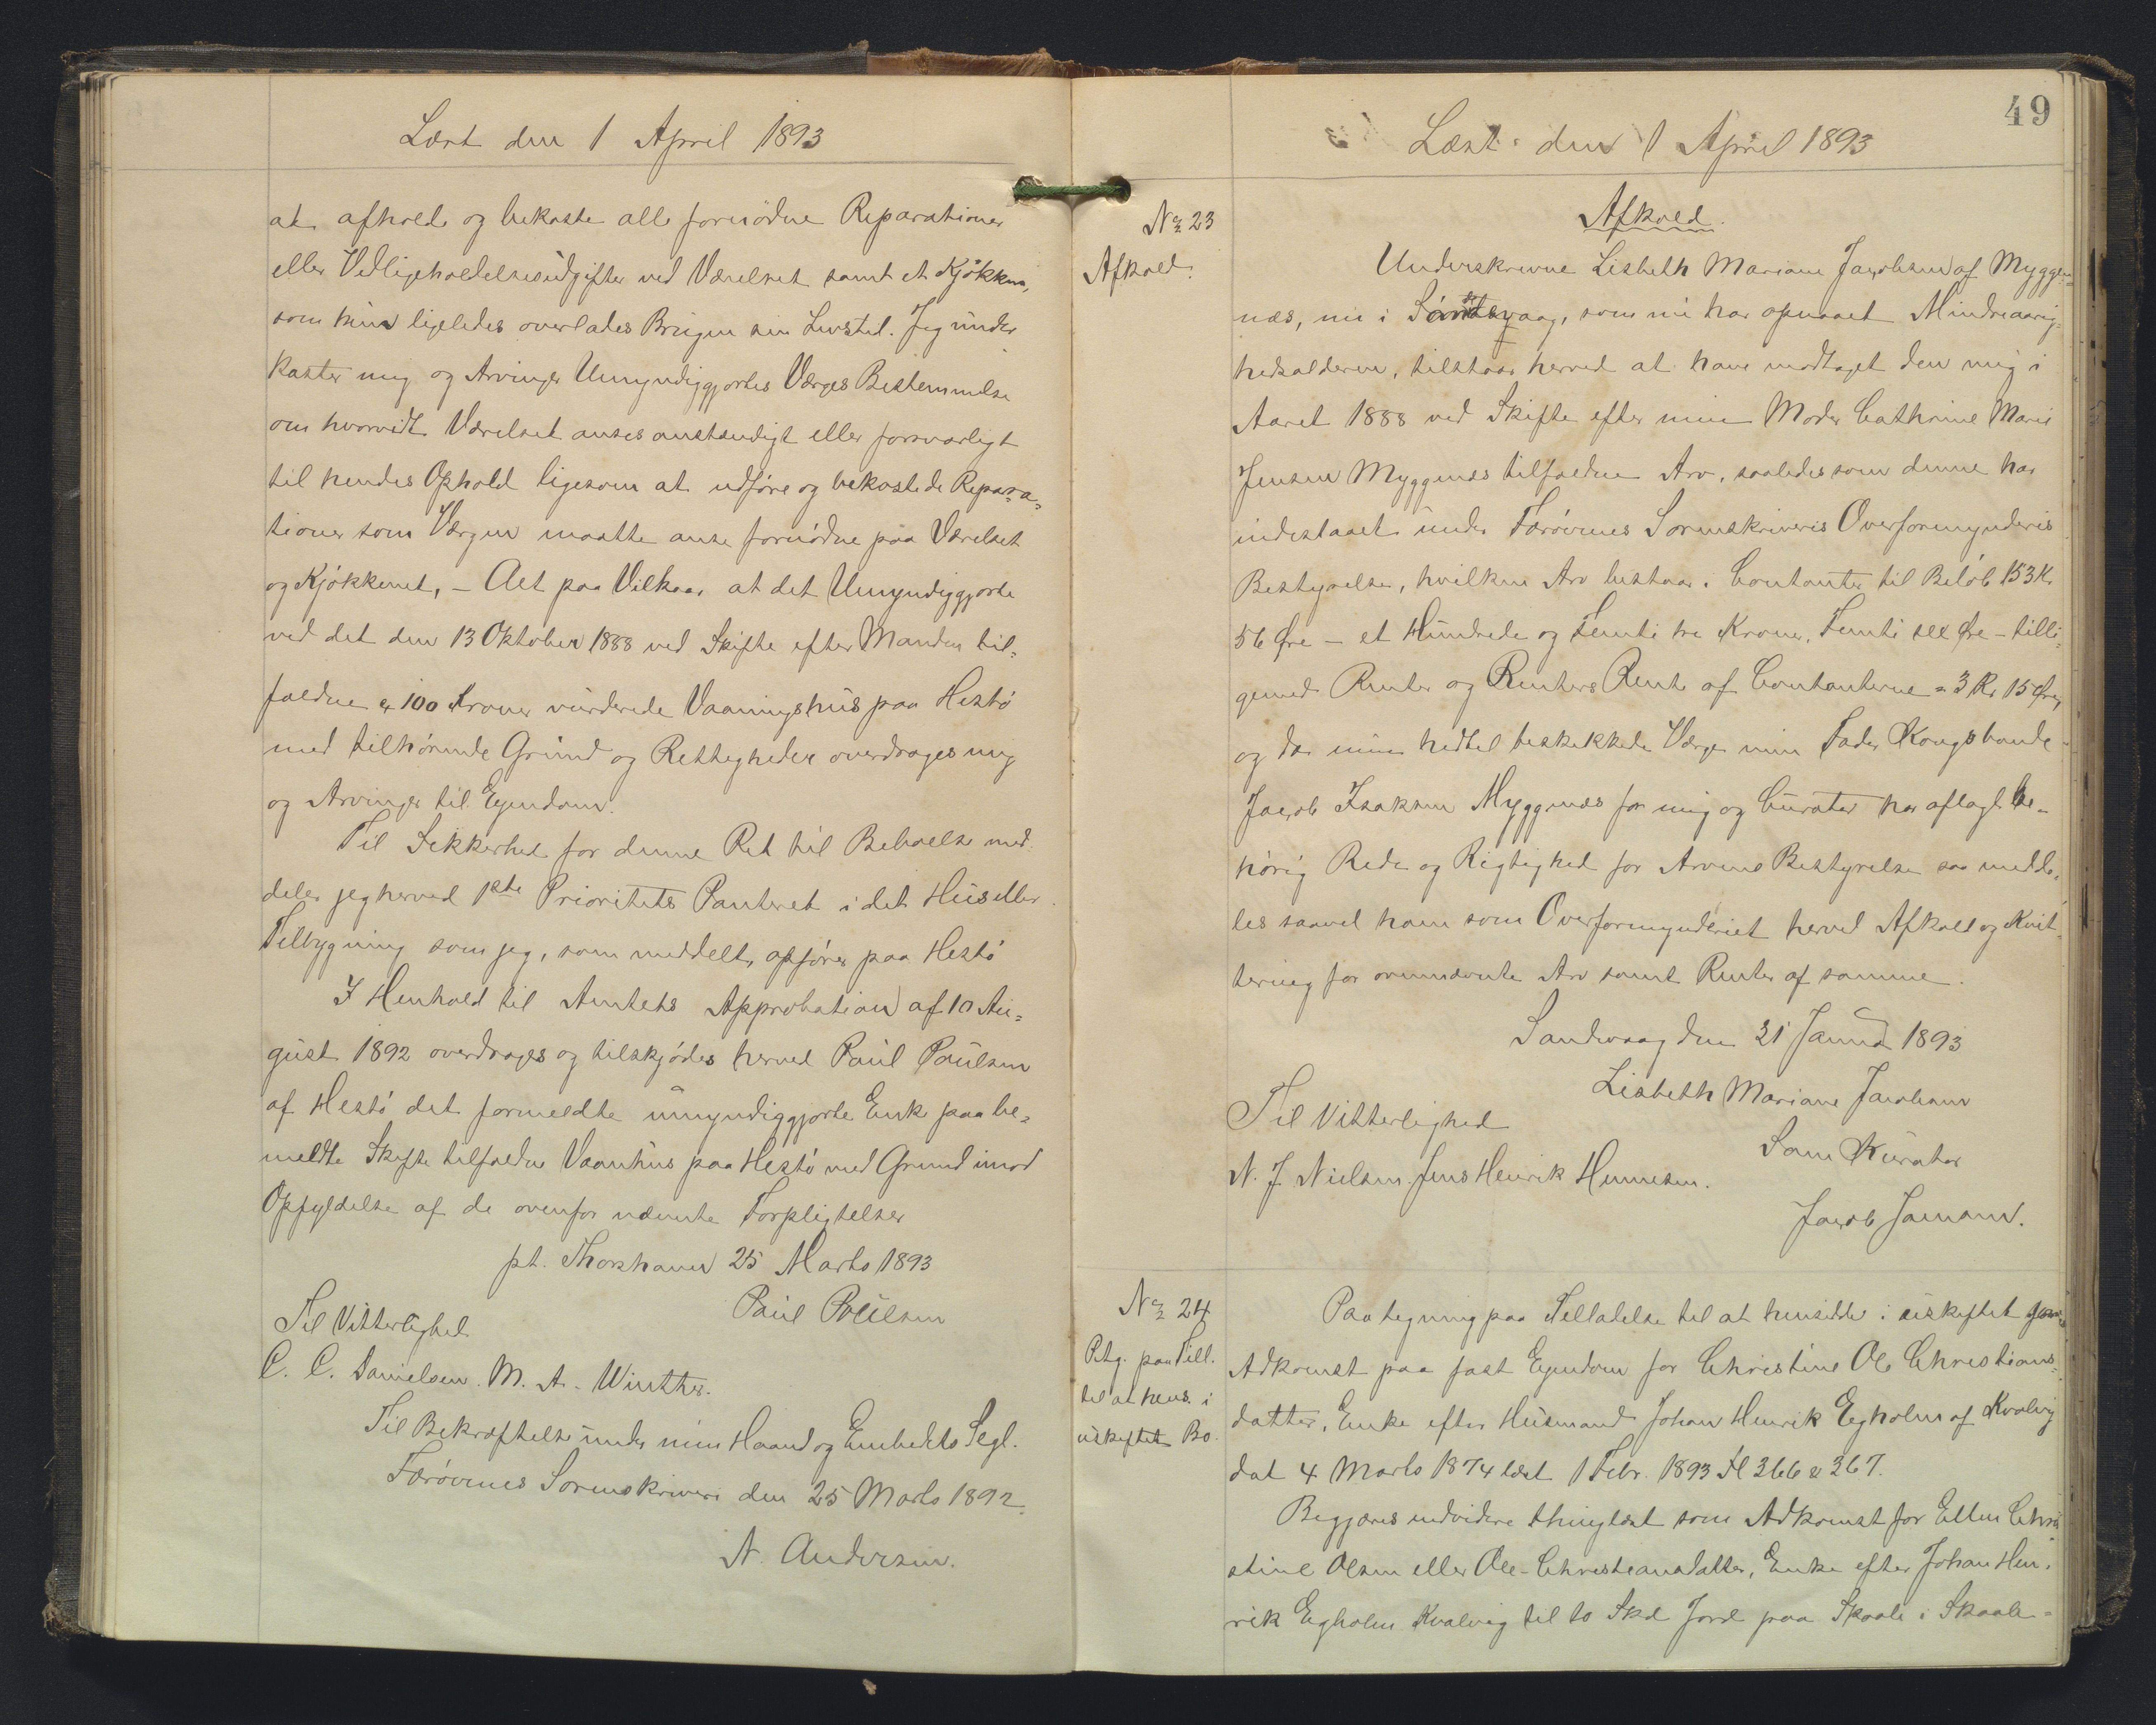 Læst den 1 April 1893
at afholde og bekoste alle fornödne Reparationer
eller Vedligeholdelsesudgifter ved Værelset samt et Kjökken,
som hun ligeledes overlades Brugen sin Livstid. Jeg under
kaster mig og Arvinger Umyndiggjortes Værges Bestemmelse
om hvorvidt Værelset anses anstændigt eller forsvarligt
til hendes Ophold ligesom at udföre og bekoste de Repara-
tioner som Værgen maatte anse fornödne paa Værelset
og Kjökkenet, – Alt paa Vilkaar at det Umyndiggjorte
ved det den 13 Oktober 1888 ved Skifte efter Manden til-
faldne a 100 Kroner vurderede Vaaningshus paa Hestö
med tilhörende Grund og Rettigheder overdrages mig
og Arvinger til Ejendom.
Til Sikkerhed for denne Ret til Beboelse med-
deler jeg herved 1ste Prioritets Panteret i det Hus eller
Tilbygning som jeg, som meddelt, opförer paa Hestö
I Henhold til Amtets Approbation af 10 Au-
gust 1892 overdrages og tilskjödes herved Paul Paulsen
af Hestö det formeldte umyndiggjorte Enke paa be-
meldte Skifte tilfaldne Vaanhus paa Hestö med Grund imod
Opfyldelse af de ovenfor nævnte Forpligtelser
pt. Thorshavn 25 Marts 1893
Paul Poulsen
Til Vitterlighed
C. C. Danielsen. M. A. Winther.
Til Bekræftelse under min Haand og Embedets Segl.
Færöernes Sorenskriveri den 25 Marts 1892.
N. Andersen.
49
Læst den 1 April 1893
No 23
Afkald.
Afkald.
Underskrevne Lisbeth Mariane Jacobsen af Myggen-
næs, nu i Sandsvaag, som nu har opnaaet Mindreaarig-
hedsalderen, tilstaar herved at have modtaget den mig i
Aaret 1888 ved Skifte efter min Moder Cathrine Marie
Jensen Myggenæs tilfaldne Arv, saaledes som denne har
indestaaet under Færöernes Sorenskriveris Overformynderis
Bestyrelse, hvilken Arv bestaar i Contanter til Belöb 153 Kr
56 Øre – et Hundrede og Femti tre Kroner, Femti sex Øre – tilli-
gemed Renter og Renters Rente af Contanterne = 3 Kr 15 Øre,
og da min hidtil beskikkede Værge min Fader Kongsbonde
Jacob Isaksen Myggenæs for mig og Curator har aflagt be-
hörig Rede og Rigtighed for Arvens Bestyrelse saa medde-
les saavel ham som Overformynderiet herved Afkald og Kvit-
tering for ovennævnte Arv samt Renter af samme.
Sandvaag den 21 Januar 1893
Lisbeth Mariane Jacobsen
Til Vitterlighed
Som Kurator
N. J. Nielsen. Jens Henrik Hennesen.
Jacob
No 24
Ptg. paa Till.
til at hens. i
uskiftet Bo.
Paategning paa Tilladelse til at hensidde i uskiftet som
Adkomst paa fast Ejendom for Christine Ole Christians-
datter, Enke efter Husmand Johan Henrik Egholm af Kvalvig
dat 4 Marts 1874 læst 1 Febr. 1893 Fl 366 & 367.
Begjæres endvidere thinglæst som Adkomst for Ellen Chri-
stine Olsen eller Ole-Christiansdatter, Enke efter Johan Hen-
rik Egholm Kvalvig til to Skd Jord paa Skaale i Skaale-